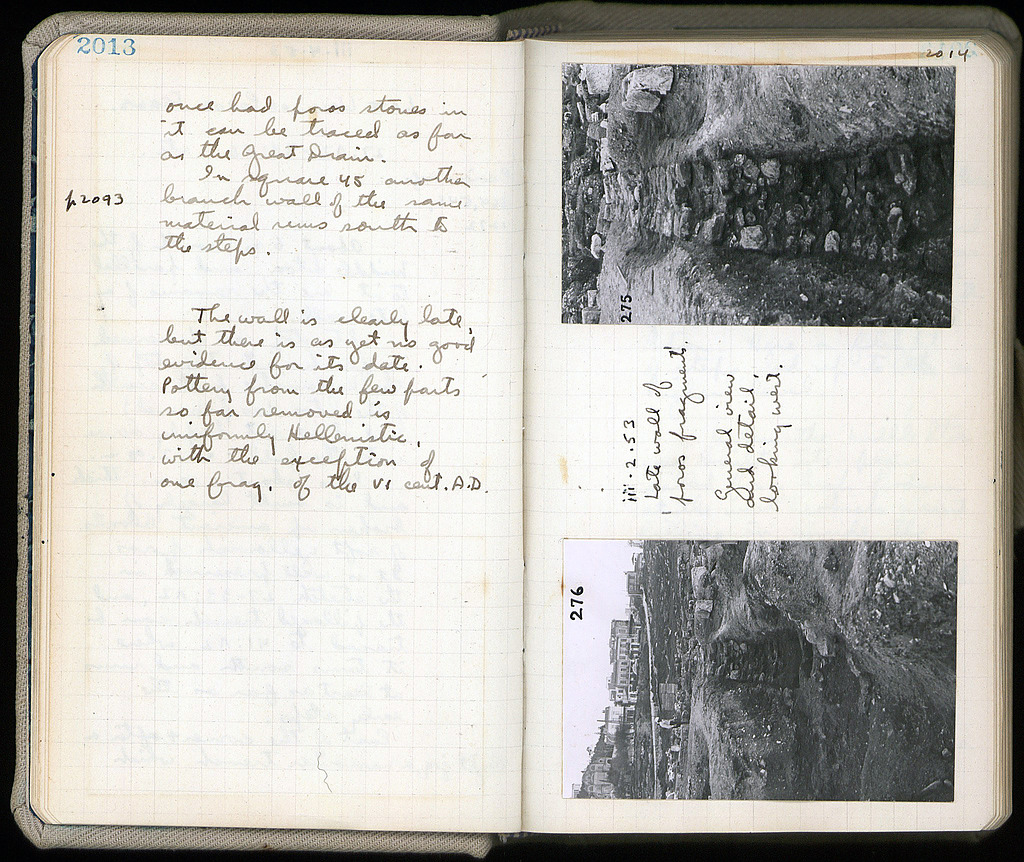 2013
once had poros stones in
it can be traced as far
as the Great Drain.
In square 45 another
p2093
branch wall of the same
material runs south to
the steps.
The wall is clearly late,
but there is as yet no good
evidence for its date.
Pottery from the few parts
so far removed is
uniformly Hellenistic,
with the exception of
one frag. of the VI cent. A.D.
2014
275
iii.2.53
Late wall of
poros fragments.
General view
and detail,
looking west.
276